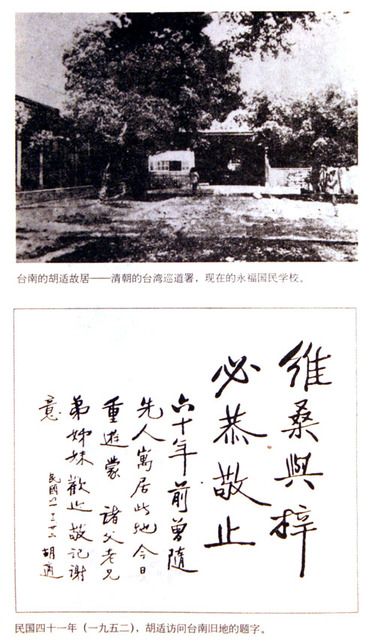 台南的胡适故居——清朝的台湾巡道署，现在的永福国民学校。
維桑與梓
必恭敬止
六十年前曾隨
先人寓居此地今日
重遊蒙 諸父老兄
弟姊妹歡迎 記謝
意
民國 胡適
民国四十一年（一九五二），胡适访问台南旧地的题字。